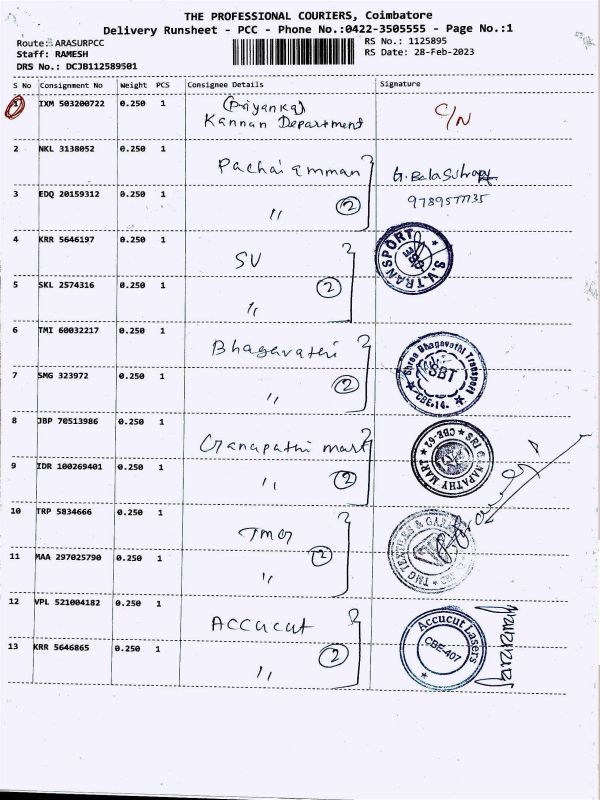 THE PROFESSIONAL COURIERS, Coimbatore
Delivery Runsheet - PCC - Phone No.:0422-3505555 - Page No.:1
Route: ARASURPCC RS No.: 1125895
Staff: RAMESH RS Date: 28-Feb-2023
DRS No.: DCJB112589501
S No Consignment No Weight PCS Consignee Details Signature
1 IXM 503200722 0.250 1 (Priyanka) C/N
Kannan Department
2 NKL 3138052 0.250 1 Pachaiamman G. Bala
3 EDQ 20159312 0.250 1 ,, 2
4 KRR 5646197 0.250 1 SV S.V.TRANSPORT
5 SKL 2574316 0.250 1 ,, 2
6 TMI 60032217 0.250 1 Bhagavathi Shree Bhagavathi Transport
SBT
CBE-14.
7 SMG 323972 0.250 1 ,, 2
8 JBP 70513986 0.250 1 Ganapathi mart SRI GANAPATHY MART
CBE-62
9 IDR 100269401 0.250 1 ,, 2
10 TRP 5834666 0.250 1 TMG TMG TEXTILES &
11 MAA 297025790 0.250 1 ,, 2
12 VPL 521004182 0.250 1 Accucut Accucut Lasers
CBE-407
13 KRR 5646865 0.250 1 ,, 2